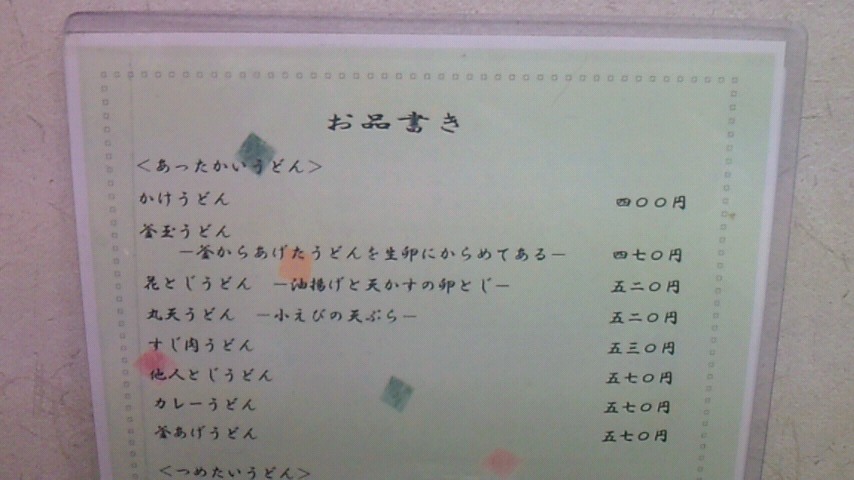 お品書き
＜あったかいうどん＞
かけうどん 四〇〇円
釜玉うどん
－釜からあげたうどんを生卵にからめてある－ 四七〇円
花とじうどん －油揚げと天かすの卵とじ－ 五二〇円
丸天うどん －小えびの天ぷら－ 五二〇円
すじ肉うどん 五三〇円
他人とじうどん 五七〇円
カレーうどん 五七〇円
釜あげうどん 五七〇円
＜つめたいうどん＞